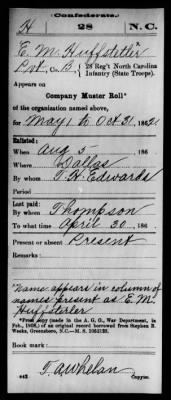 Confederate.
H 28 N.C.
E. M. Huffstetler*
Pvt., Co. B., 28 Reg't North Carolina
Infantry (State Troops)
Appears on
Company Muster Roll*
of the organization named above,
for May 1 to Oct 31, 186
Enlisted:
When Aug 5, 186
Where Dallas
By whom T. H. Edwards
Period
Last paid:
By whom Thompson
To what time April 30, 186
Present or absent Present
Remarks:
Name appears in column of
names present as E. M.
Huffsterler
*From copy (made in the A. G. O., War Department, in
Feb., 1908,) of an original record borrowed from Stephen B.
Weeks, Greensboro, N.C.—M. S.
Book mark:
T. A. Whelan
Copyist.